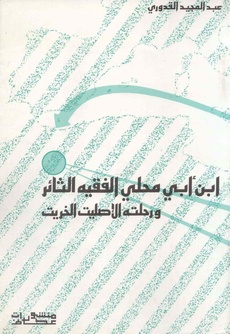 عبد المجيد القدوري
ابن أبي محلي الفقيه الثائر
ورحلته الأصليت الخريت
منشورات
عكاظ